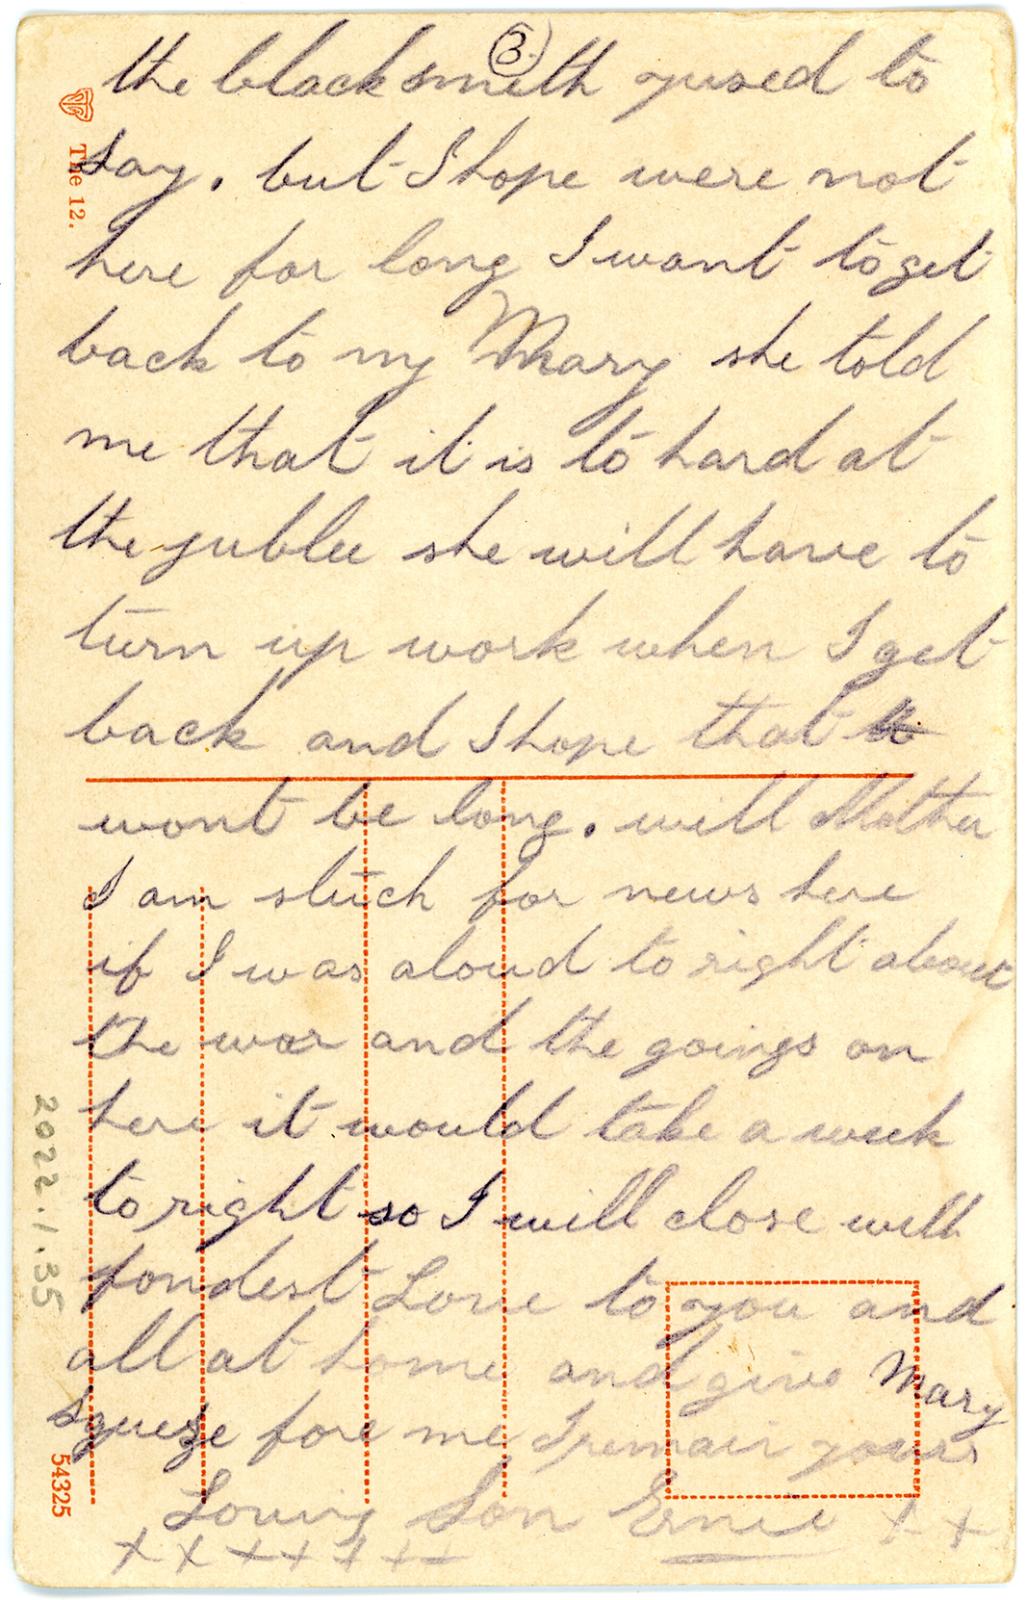 (3.)
the blacksmith yused to
say. but I hope were not
here for long I want to get
back to my Mary she told
me that it is to hard at
the jublee she will have to
turn up work when I get
back and I hope that it
wont be long. well Mother
I am stuch for news here
if I was aloud to right about
the war and the goings on
here it would take a week
to right so I will close with
fondest Love to you and
all at home and give Mary
squeze fore me I remain yours
Loving Son Ernie x x
x x x x x x x
The 12.
54325
2022.1.35